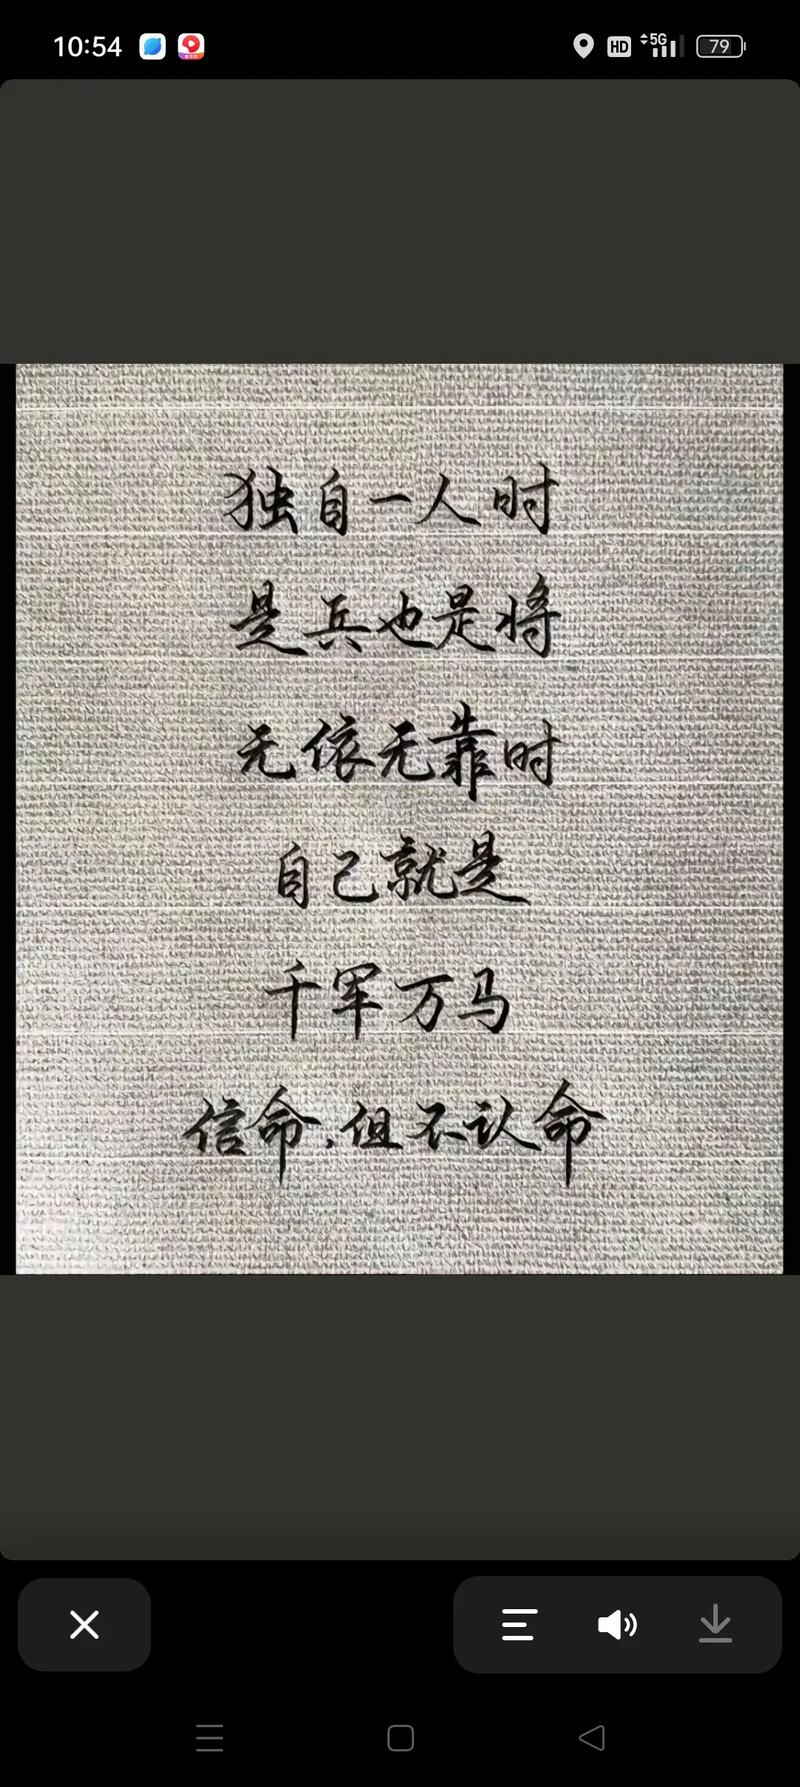 10:54
HD
5G
79
独自一人时
是兵也是将
无依无靠时
自己就是
千军万马
信命，但不认命